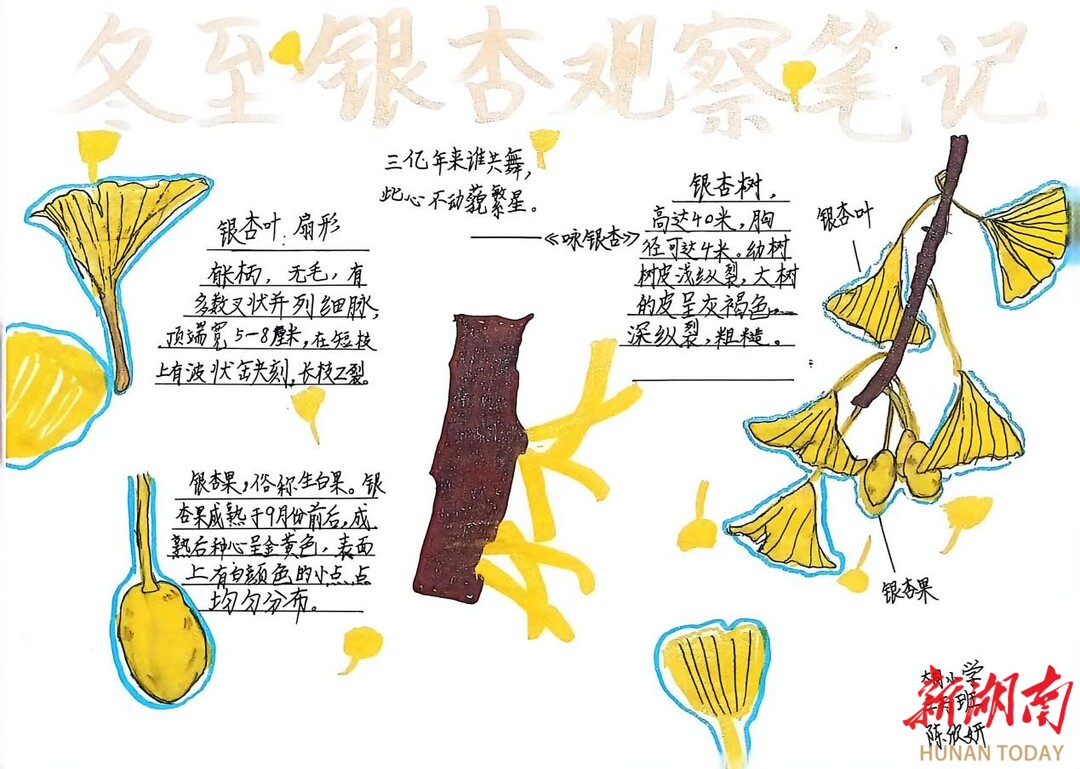 冬至银杏观察笔记
三亿年来谁共舞,
此心不动藐繁星。
——《咏银杏》
银杏叶:扇形
有长柄,无毛,有
多数叉状并列细脉,
顶端宽5-8厘米,在短枝
上有波状缺刻,长枝2裂。
银杏树,
高达40米,胸
径可达4米。幼树
树皮浅纵裂,大树
的皮呈灰褐色……
深纵裂,粗糙。
银杏叶
银杏果
银杏果,俗称生白果。银
杏果成熟于9月份前后,成
熟后种心呈金黄色,表面
上有白颜色的小点,点
均匀分布。
小学
班
陈欣妍
新湖南
HUNAN TODAY